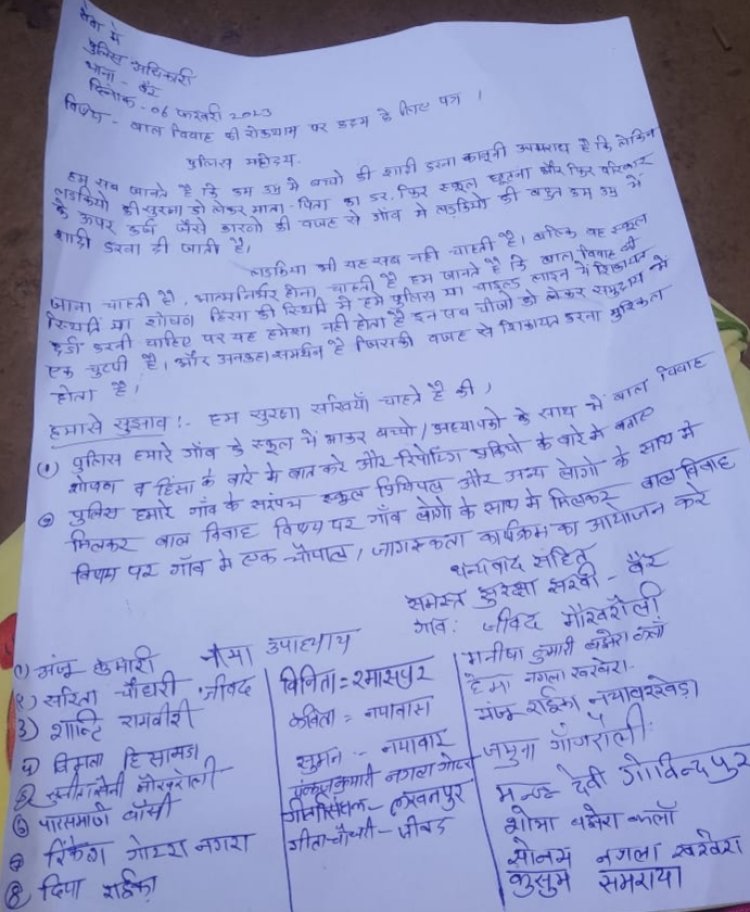 सेवा में
पुलिस अधिकारी
थाना - वैर
दिनांक - 06 फरवरी 2023
विषय - बाल विवाह की रोकथाम पर कदम के लिए पत्र ।
पुलिस महोदय.
हम सब जानते है कि कम उम्र मे बच्चो की शादी करना कानूनी अपराध है कि लेकिन
लड़कियो की सुरक्षा को लेकर माता - पिता का डर, फिर स्कूल छूटना और फिर परिवार
के ऊपर कर्ज जैसे कारणो की वजह से गाँव मे लड़कियो की बहुत कम उम्र में
शादी करवा दी जाती है।
लड़किया भी यह सब नही चाहती है। बल्कि वह स्कूल
जाना चाहती है, आत्मनिर्भर होना चाहती है हम जानते है कि बाल विवाह की
स्थिति या शोषण हिंसा की स्थिति मे हमे पुलिस या चाइल्ड लाइन मे शिकायत
दर्ज करनी चाहिए पर यह हमेशा नही होता है इन सब चीजो को लेकर समुदाय मे
एक चुप्पी है। और अनकहा समर्थन है जिसकी वजह से शिकायत करना मुश्किल
होता है।
हमारे सुझाव :- हम सुरक्षा सखियाँ चाहते है की,
(1) पुलिस हमारे गाँव के स्कूल मे आकर बच्चो / अध्यापको के साथ मे बाल विवाह
शोषण व हिंसा के बारे मे बात करे और रिपोर्टिंग प्रक्रियो के बारे मे बताए
② पुलिस हमारे गाँव के सरपंच स्कूल प्रिंसिपल और अन्य लोगो के साथ मे
मिलकर बाल विवाह विषय पर गाँव लोगो के साथ मे मिलकर बाल विवाह
विषय पर गाँव मे एक चौपाल / जागरूकता कार्यक्रम का आयोजन करे
धन्यवाद सहित
समस्त सुरक्षा सखी - वैर
गांव: जीवद मौखरौली
(1) अंजू कुमारी उपाध्याय
2) सरिता चौधरी जीवद
3) शान्टि रामवीरी
4) विमला
5) मोखरोली
6)
7) नगरा
8) दिपा राईका
विनिता = रमासपुर
कविता = नयावास
सुमन -
नगला
लखनपुर
गीता चौधरी - जीवद
मनीषा कुमारी बझेरा कलाँ
हेमा नगला खरबेरा.
मंजू राईका
जमुना गाँगरोली
देवी गोविन्दपुर
शोभा बझेरा कलाँ
सोनम नगला खरबेरा
कुसुम समराया